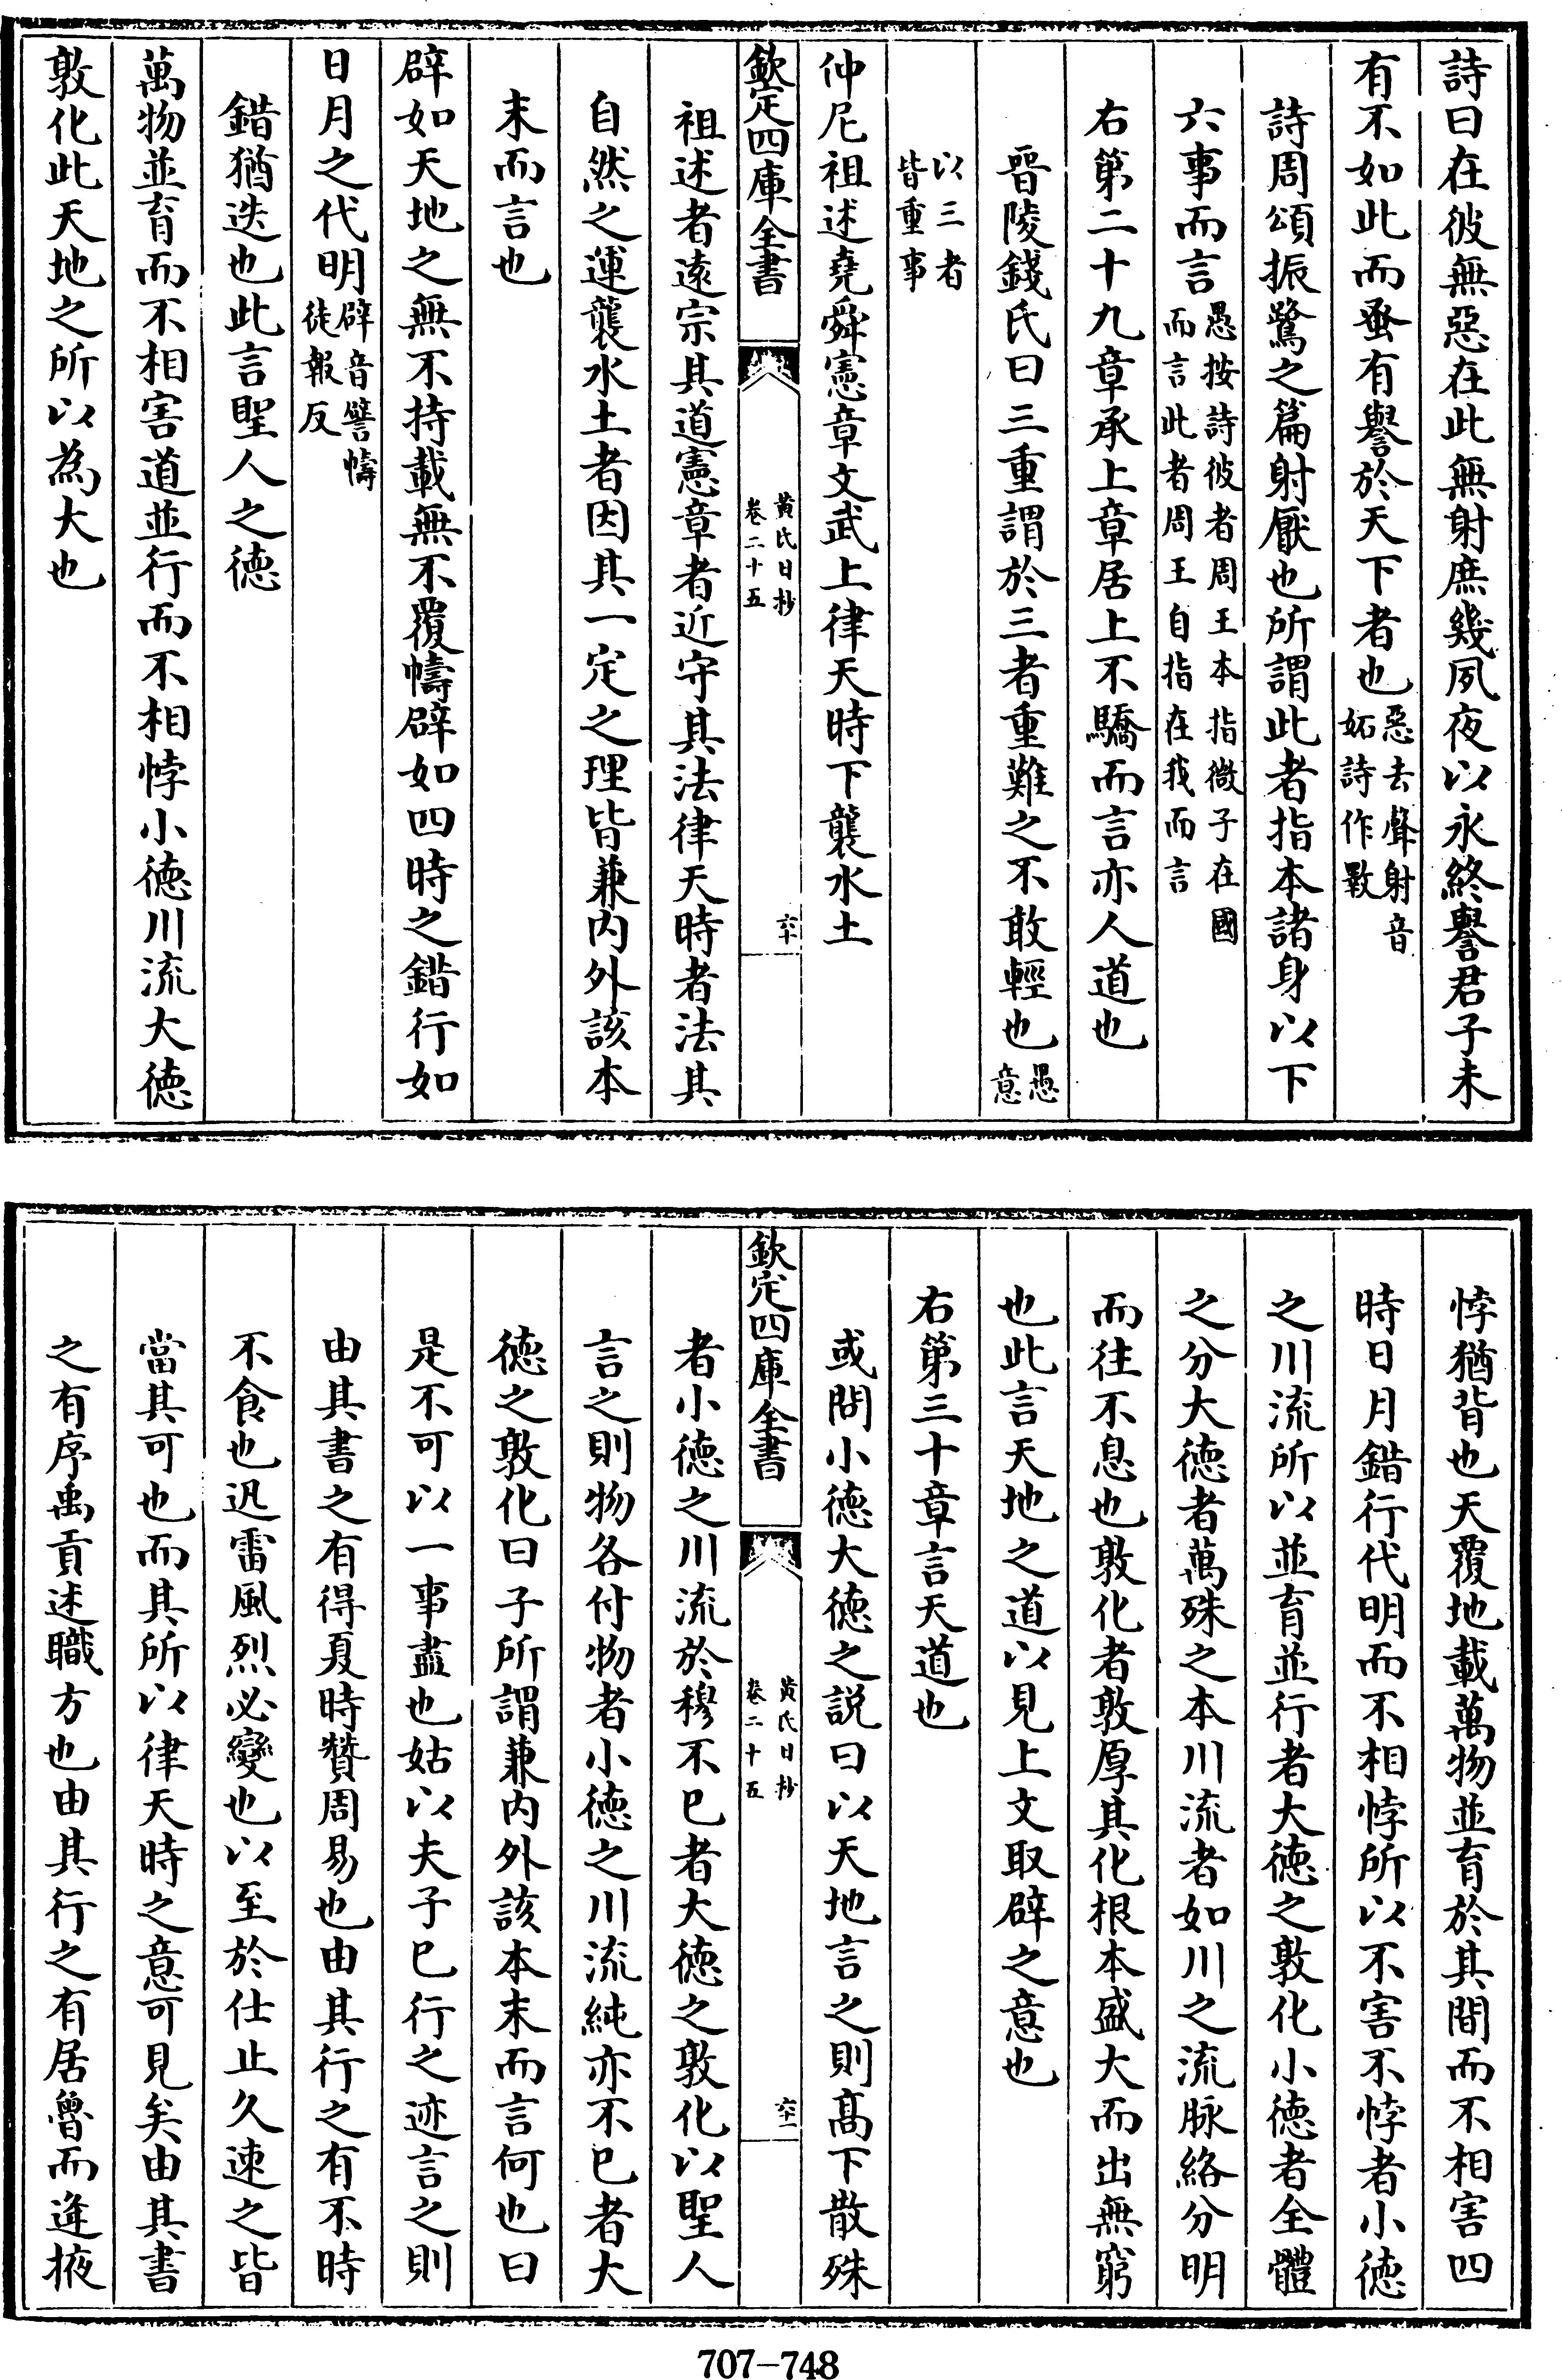 詩曰在彼無惡在此無射庶幾夙夜以永終譽君子未
有不如此而蚤有譽於天下者也惡去聲射音妬詩作斁
詩周頌振鷺之篇射厭也所謂此者指本諸身以下
六事而言愚按詩彼者周王本指微子在國而言此者周王自指在我而言
右第二十九章承上章居上不驕而言亦人道也
晉陵錢氏曰三重謂於三者重難之不敢輕也愚意
以三者皆重事
仲尼祖述堯舜憲章文武上律天時下襲水土
欽定四庫全書 黃氏日抄卷二十五 六十
祖述者遠宗其道憲章者近守其法律天時者法其
自然之運襲水土者因其一定之理皆兼內外該本
末而言也
辟如天地之無不持載無不覆幬辟如四時之錯行如
日月之代明辟音譬幬徒報反
錯猶迭也此言聖人之德
萬物並育而不相害道並行而不相悖小德川流大德
敦化此天地之所以為大也
悖猶背也天覆地載萬物並育於其間而不相害四
時日月錯行代明而不相悖所以不害不悖者小德
之川流所以並育並行者大德之敦化小德者全體
之分大德者萬殊之本川流者如川之流脉絡分明
而往不息也敦化者敦厚其化根本盛大而出無窮
也此言天地之道以見上文取辟之意也
右第三十章言天道也
或問小德大德之說曰以天地言之則高下散殊
欽定四庫全書 黃氏日抄卷二十五 六十一
者小德之川流於穆不已者大德之敦化以聖人
言之則物各付物者小德之川流純亦不已者大
德之敦化曰子所謂兼內外該本末而言何也曰
是不可以一事盡也姑以夫子已行之迹言之則
由其書之有得夏時贊周易也由其行之有不時
不食也迅雷風烈必變也以至於仕止久速之皆
當其可也而其所以律天時之意可見矣由其書
之有序禹貢述職方也由其行之有居魯而逢掖
707-748